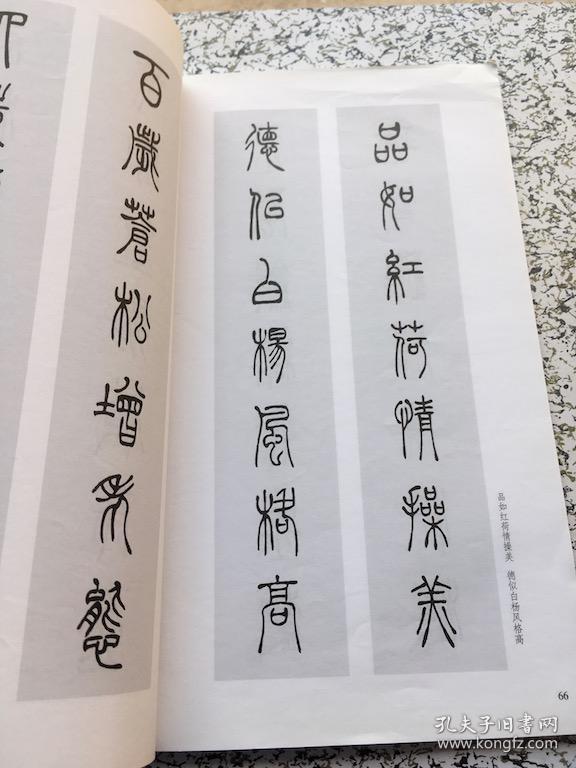 品如紅荷情操美
德似白楊風格高
品如红荷情操美 德似白杨风格高
66
百歲蒼松增秀態
孔夫子旧书网
www.kongfz.com